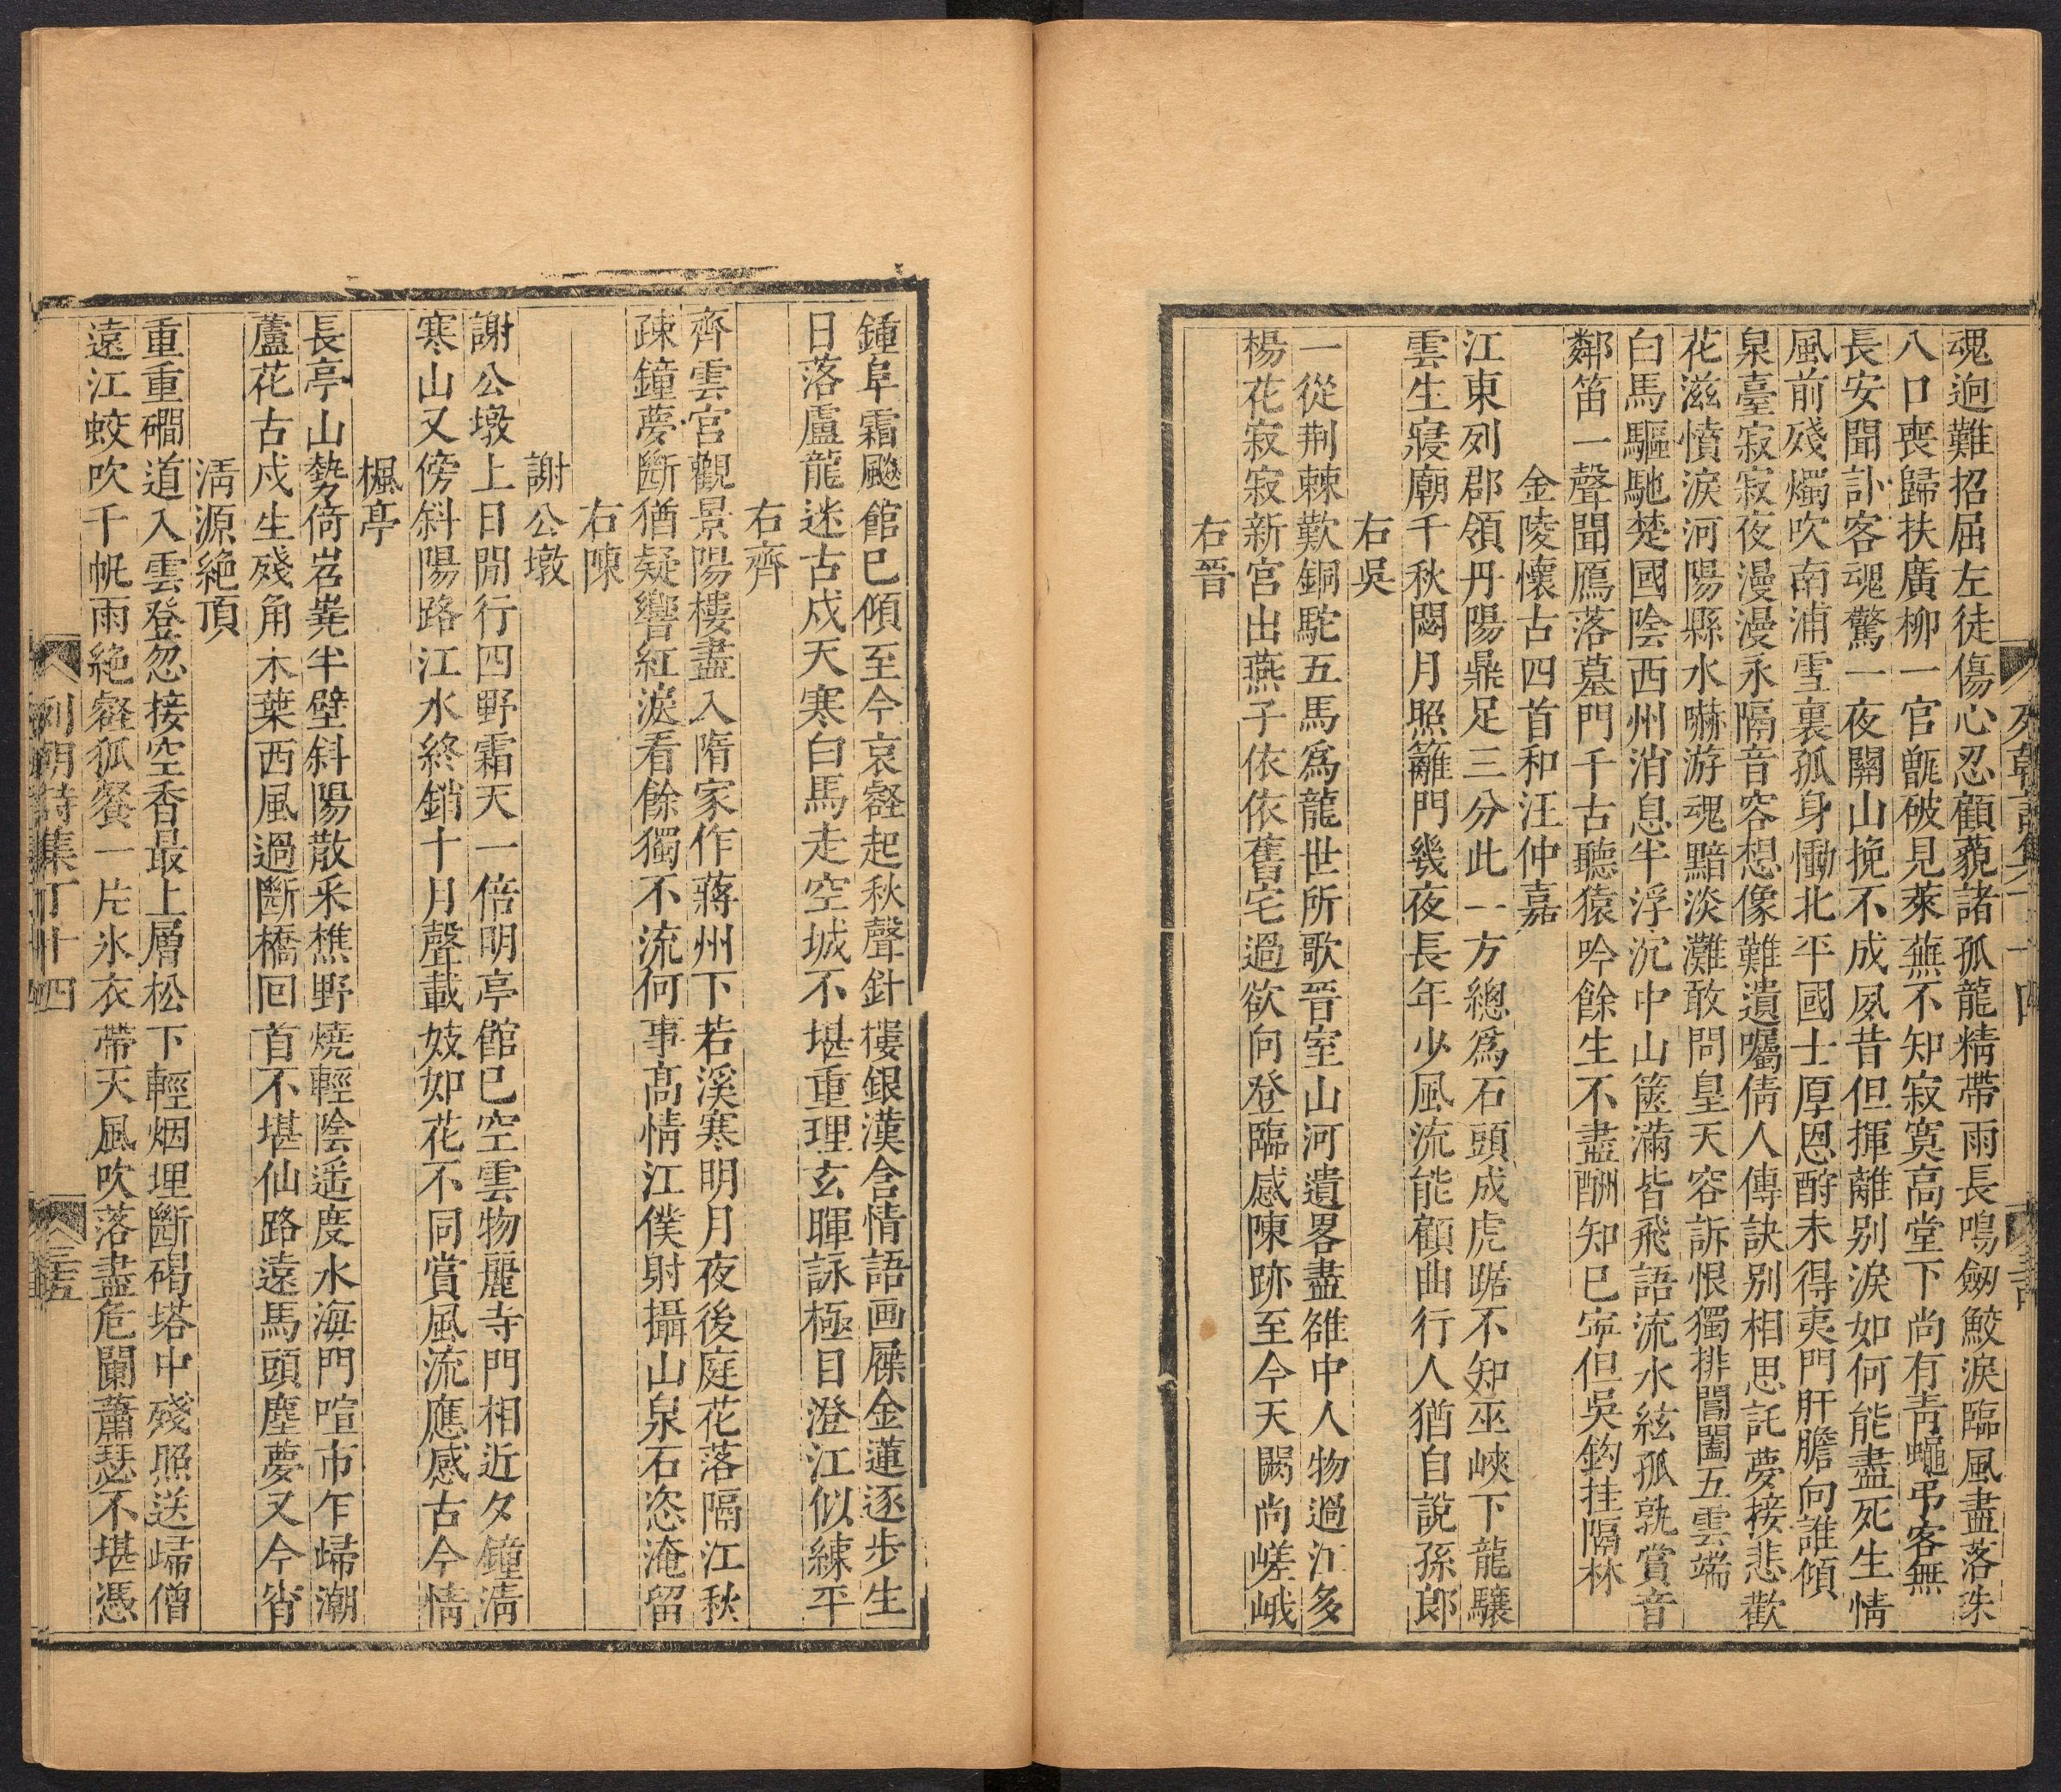 魂逈難招屈左徒傷心忍顧藐諸孤龍精帶雨長鳴劒鮫淚臨風盡落珠
八口喪歸扶廣柳一官甑破見萊蕪不知寂寞高堂下尚有青蠅弔客無
長安聞訃客魂驚一夜關山挽不成夙昔但揮離别淚如何能盡死生情
風前殘燭吹南浦雪裏孤身慟北平國士厚恩酧未得夷門肝膽向誰傾
泉臺寂寂夜漫漫永隔音容想像難遺囑倩人傳訣别相思託夢接悲歡
花滋憤淚河陽縣水嚇游魂黯淡灘敢問皇天容訴恨獨排閶闔五雲端
白馬驅馳楚國陰西州消息半浮沉中山篋滿皆飛語流水絃孤孰賞音
鄰笛一聲聞鴈落墓門千古聽猿吟餘生不盡酬知巳寧但吳鈎挂隔林
金陵懷古四首和汪仲嘉
江東列郡領丹陽鼎足三分此一方總爲石頭成虎踞不知巫峽下龍驤
雲生寢廟千秋閟月照籬門幾夜長年少風流能顧曲行人猶自說孫郎
右吳
一從荆棘歎銅駝五馬爲龍世所歌晉室山河遺畧盡雒中人物過江多
楊花寂寂新宮出燕子依依舊宅過欲向登臨感陳跡至今天闕尚嵯峨
右晉
列朝詩集丁十四
鍾阜霜飇館巳傾至今哀壑起秋聲針樓銀漢含情語画屧金蓮逐步生
日落盧龍迷古戍天寒白馬走空城不堪重理玄暉詠極目澄江似練平
右齊
齊雲官觀景陽樓盡入隋家作蔣州下若溪寒明月夜後庭花落隔江秋
疎鐘夢斷猶疑響紅淚看餘獨不流何事高情江僕射攝山泉石恣淹留
右陳
謝公墩
謝公墩上日閒行四野霜天一倍明亭館巳空雲物麗寺門相近夕鐘清
寒山又傍斜陽路江水終銷十月聲載妓如花不同賞風流應感古今情
楓亭
長亭山勢倚岧嶤半壁斜陽散采樵野燒輕陰遥度水海門喧市乍歸潮
蘆花古戍生殘角木葉西風過斷橋回首不堪仙路遠馬頭塵夢又今宵
淸源絶頂
重重磵道入雲登忽接空香最上層松下輕烟埋斷碣塔中殘照送歸僧
遠江蛟吹千帆雨絶壑狐餐一片氷衣帶天風吹落盡危闌蕭瑟不堪憑
列朝詩集丁十四
三十五